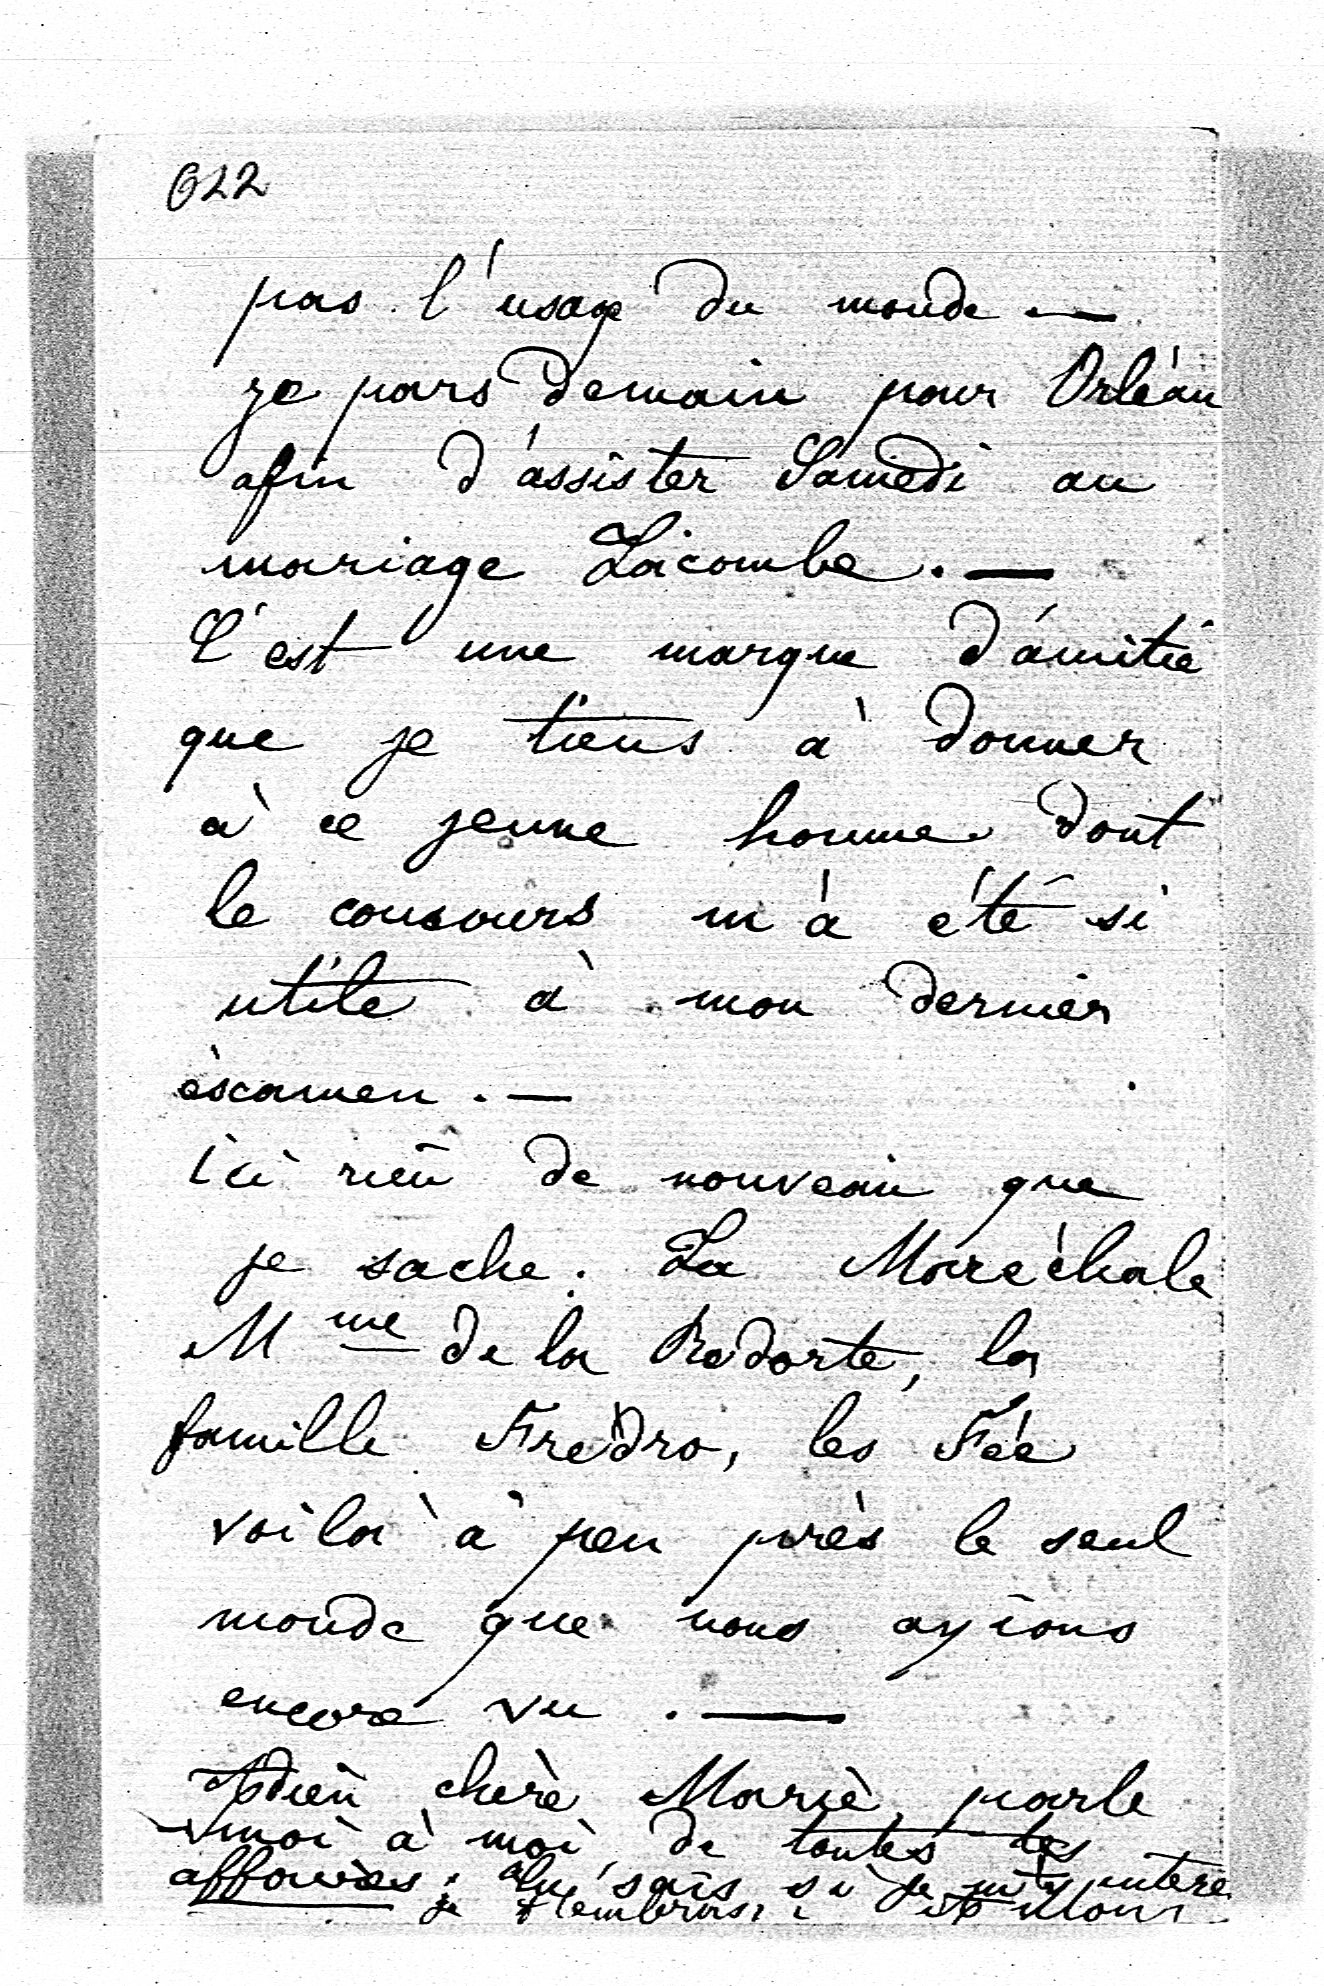 622
pas l'usage du monde. —
je pars demain pour Orléan
afin d'assister Samedi au
mariage Lacombe. —
C'est une marque d'amitié
que je tiens à donner
à ce jeune homme dont
le concours m'a été si
utile à mon dernier
éxcamen. —
ici rien de nouveau que
je sache. La Maréchale
Mme de la Redorte, la
famille Frédro, les Fée
voila à peu près le seul
monde que nous ayions
encore vu. —
Adieu chère Marie, parle
moi à moi de toutes tes
affaires; tu sais si je m'y intere
je t'embrasse